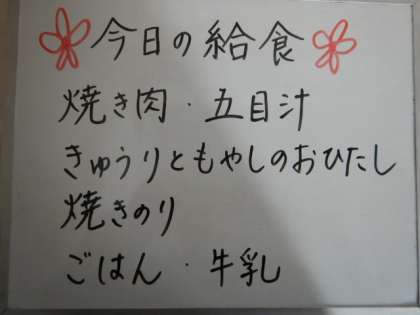 今日の給食
焼き肉・五目汁
きゅうりともやしのおひたし
焼きのり
ごはん・牛乳